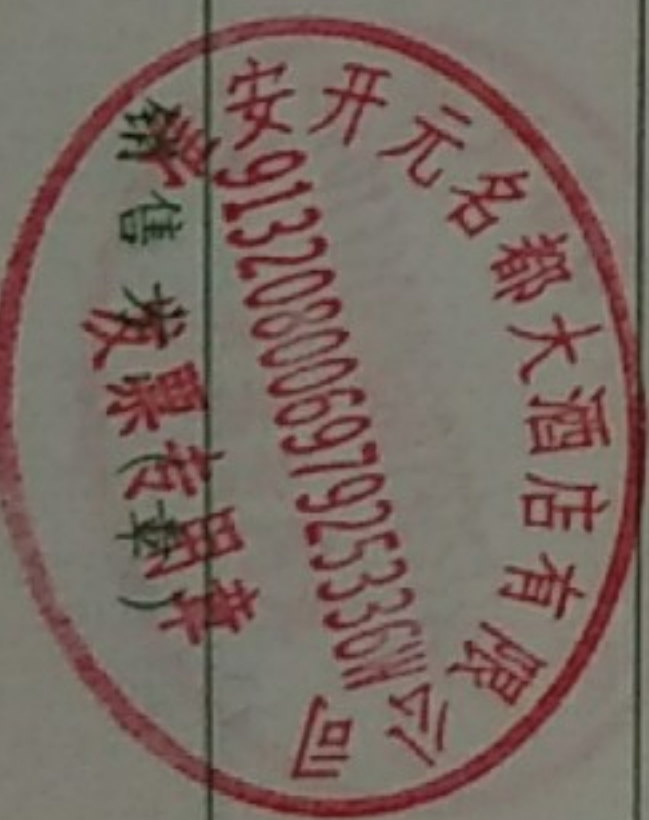 安开元名都大酒店有限公司
91320800697925336W
发票专用章
销售方:(章)